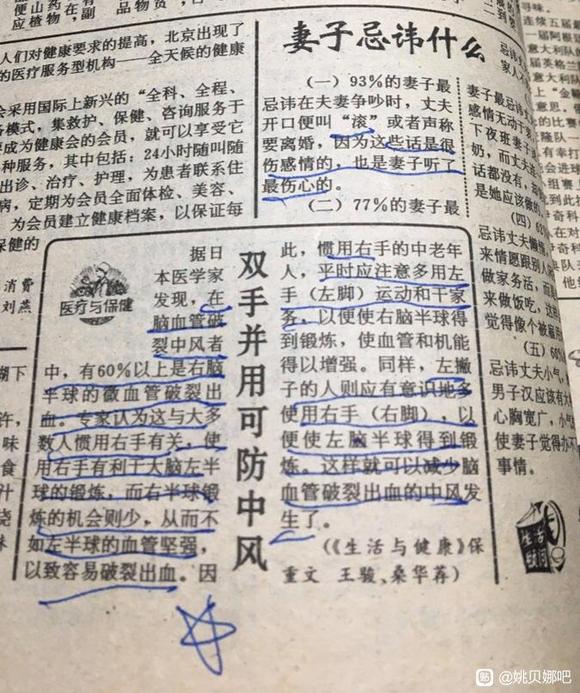 便山药有
应植物，在
副
品物资，日
人们对健康要求的提高，北京出现了
的医疗服务型机构——全天候的健康
会采用国际上新兴的“全科、全程、
务模式，集救护、保健、咨询服务于
要成为健康会的会员，就可以享受它
种服务，其中包括：24小时随叫随
出诊、治疗、护理，为患者联系住
病，定期为会员全面体检、美容、
为会员建立健康档案，以保证每
的健康
消费
刘燕
妻子忌讳什么
（一）93%的妻子最
忌讳在夫妻争吵时，丈夫
开口便叫“滚”或者声称
要离婚，因为这些话是很
伤感情的，也是妻子听了
最伤心的。
（二）77%的妻子最
忌讳
家人不
妻子最忌讳丈
感情无动于衷
下夜班妻子
奶，而丈夫连
话都没有，
是她应该做的
（四）6
忌讳丈夫懒惰
来情愿跟别人
做家务活，而
来做饭吃，这
觉得像个被雇
（五）60%
忌讳丈夫小气，
男子汉应该有大
心胸宽广，小气
使妻子觉得办不
事情。
双手并用可防中风
医疗与保健
据日
本医学家
发现，在
脑血管破
裂中风者
中，有60%以上是右脑
半球的微血管破裂出
血。专家认为这与大多
数人惯用右手有关，使
用右手有利于大脑左半
球的锻炼，而右半球锻
炼的机会则少，从而不
如左半球的血管坚强，
以致容易破裂出血。因
此，惯用右手的中老年
人，平时应注意多用左
手（左脚）运动和干家
务，以便使右脑半球得
到锻炼，使血管和机能
得以增强。同样，左撇
子的人则应有意识地多
使用右手（右脚），以
便使左脑半球得到锻
炼。这样就可以减少脑
血管破裂出血的中风发
生了。
（《生活与健康》保
重文 王骏、桑华荐）
贴 @姚贝娜吧